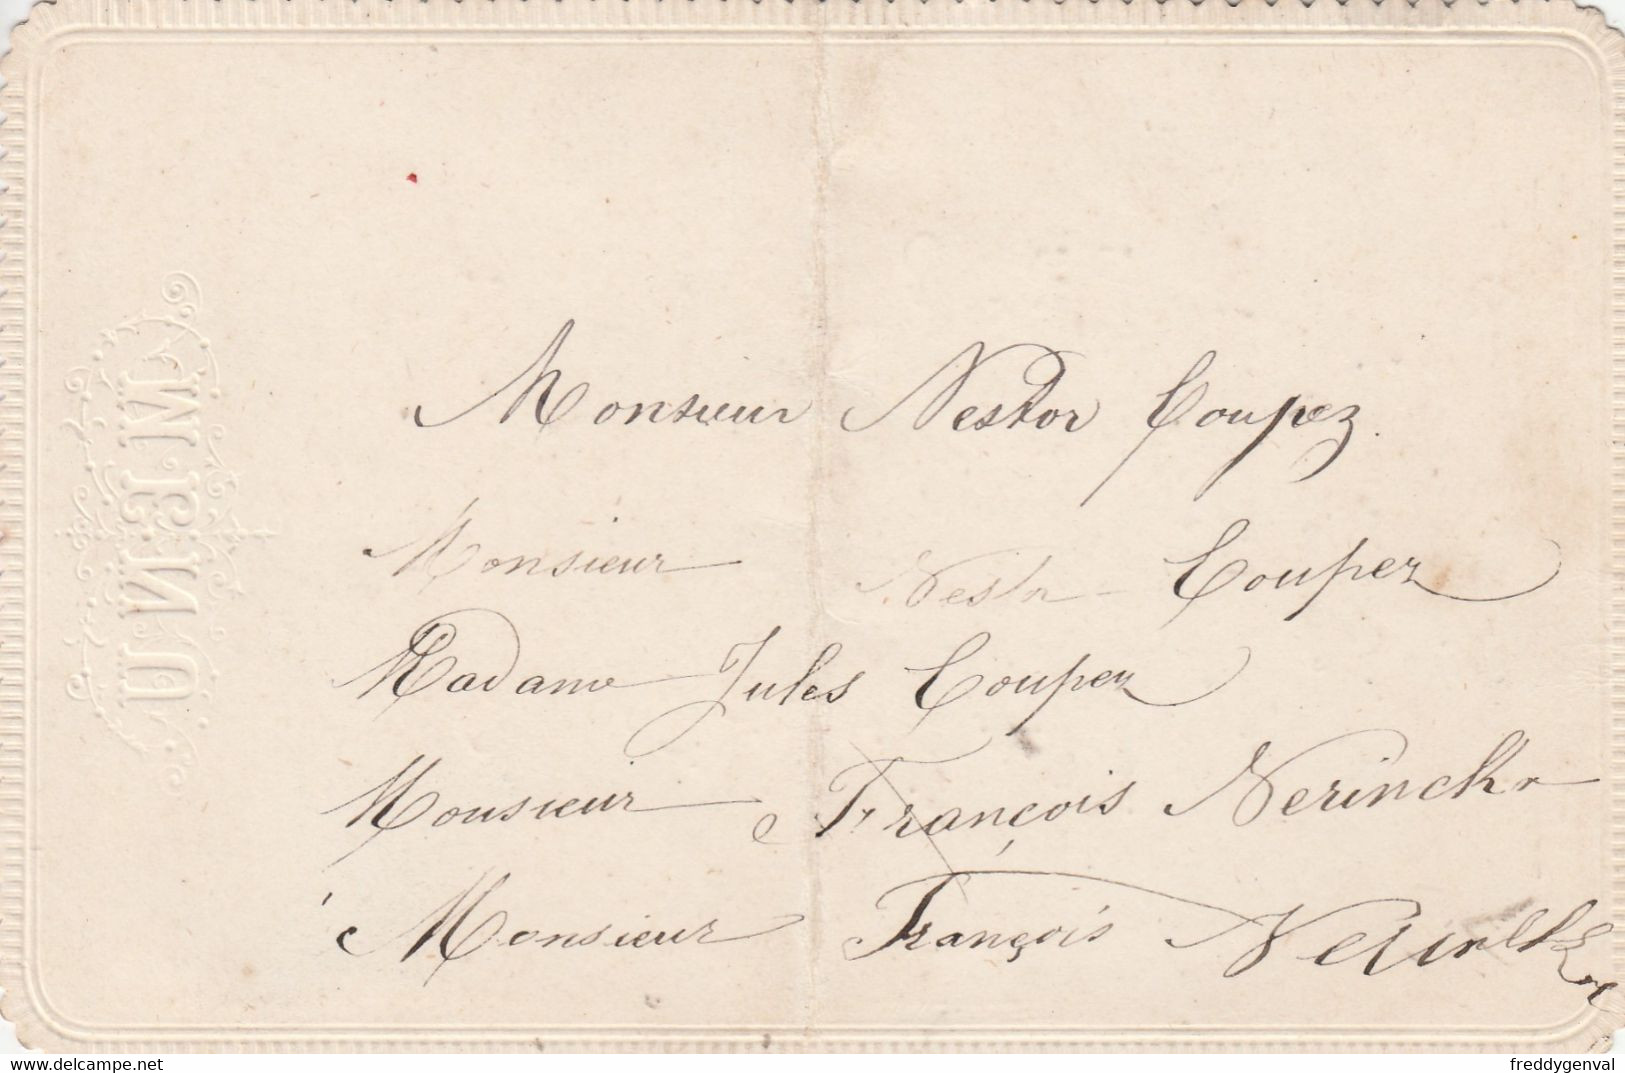 MENU
Monsieur Nestor Coupez.
Monsieur Nestor Coupez
Madame Jules Coupez
Monsieur François Nerinckx
Monsieur François Nerinckx
delcampe.net
freddygenval